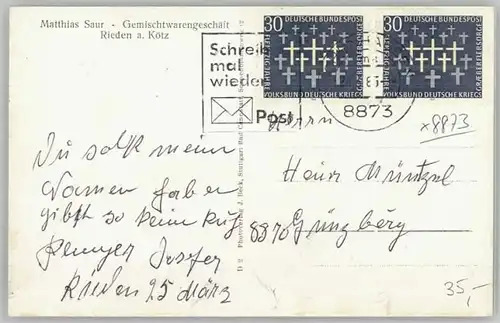 Matthias Saur - Gemischtwarengeschäft
Rieden a. Kötz
Schreib
mal
wieder
Post
30 DEUTSCHE BUNDESPOST
VOLKSBUND DEUTSCHE KRIEGSGRÄBERFÜRSORGE
30 DEUTSCHE BUNDESPOST
VOLKSBUND DEUTSCHE KRIEGSGRÄBERFÜRSORGE
8873
x8873
Herrn
Heinr Müntzel
8870 Günzberg
Du solst meine
Namen haben
gibst so kein Ruh
Josefa
Rieden 25 März
Photoverlag J. Beck, Stuttgart-Bad Cannstatt
35,-